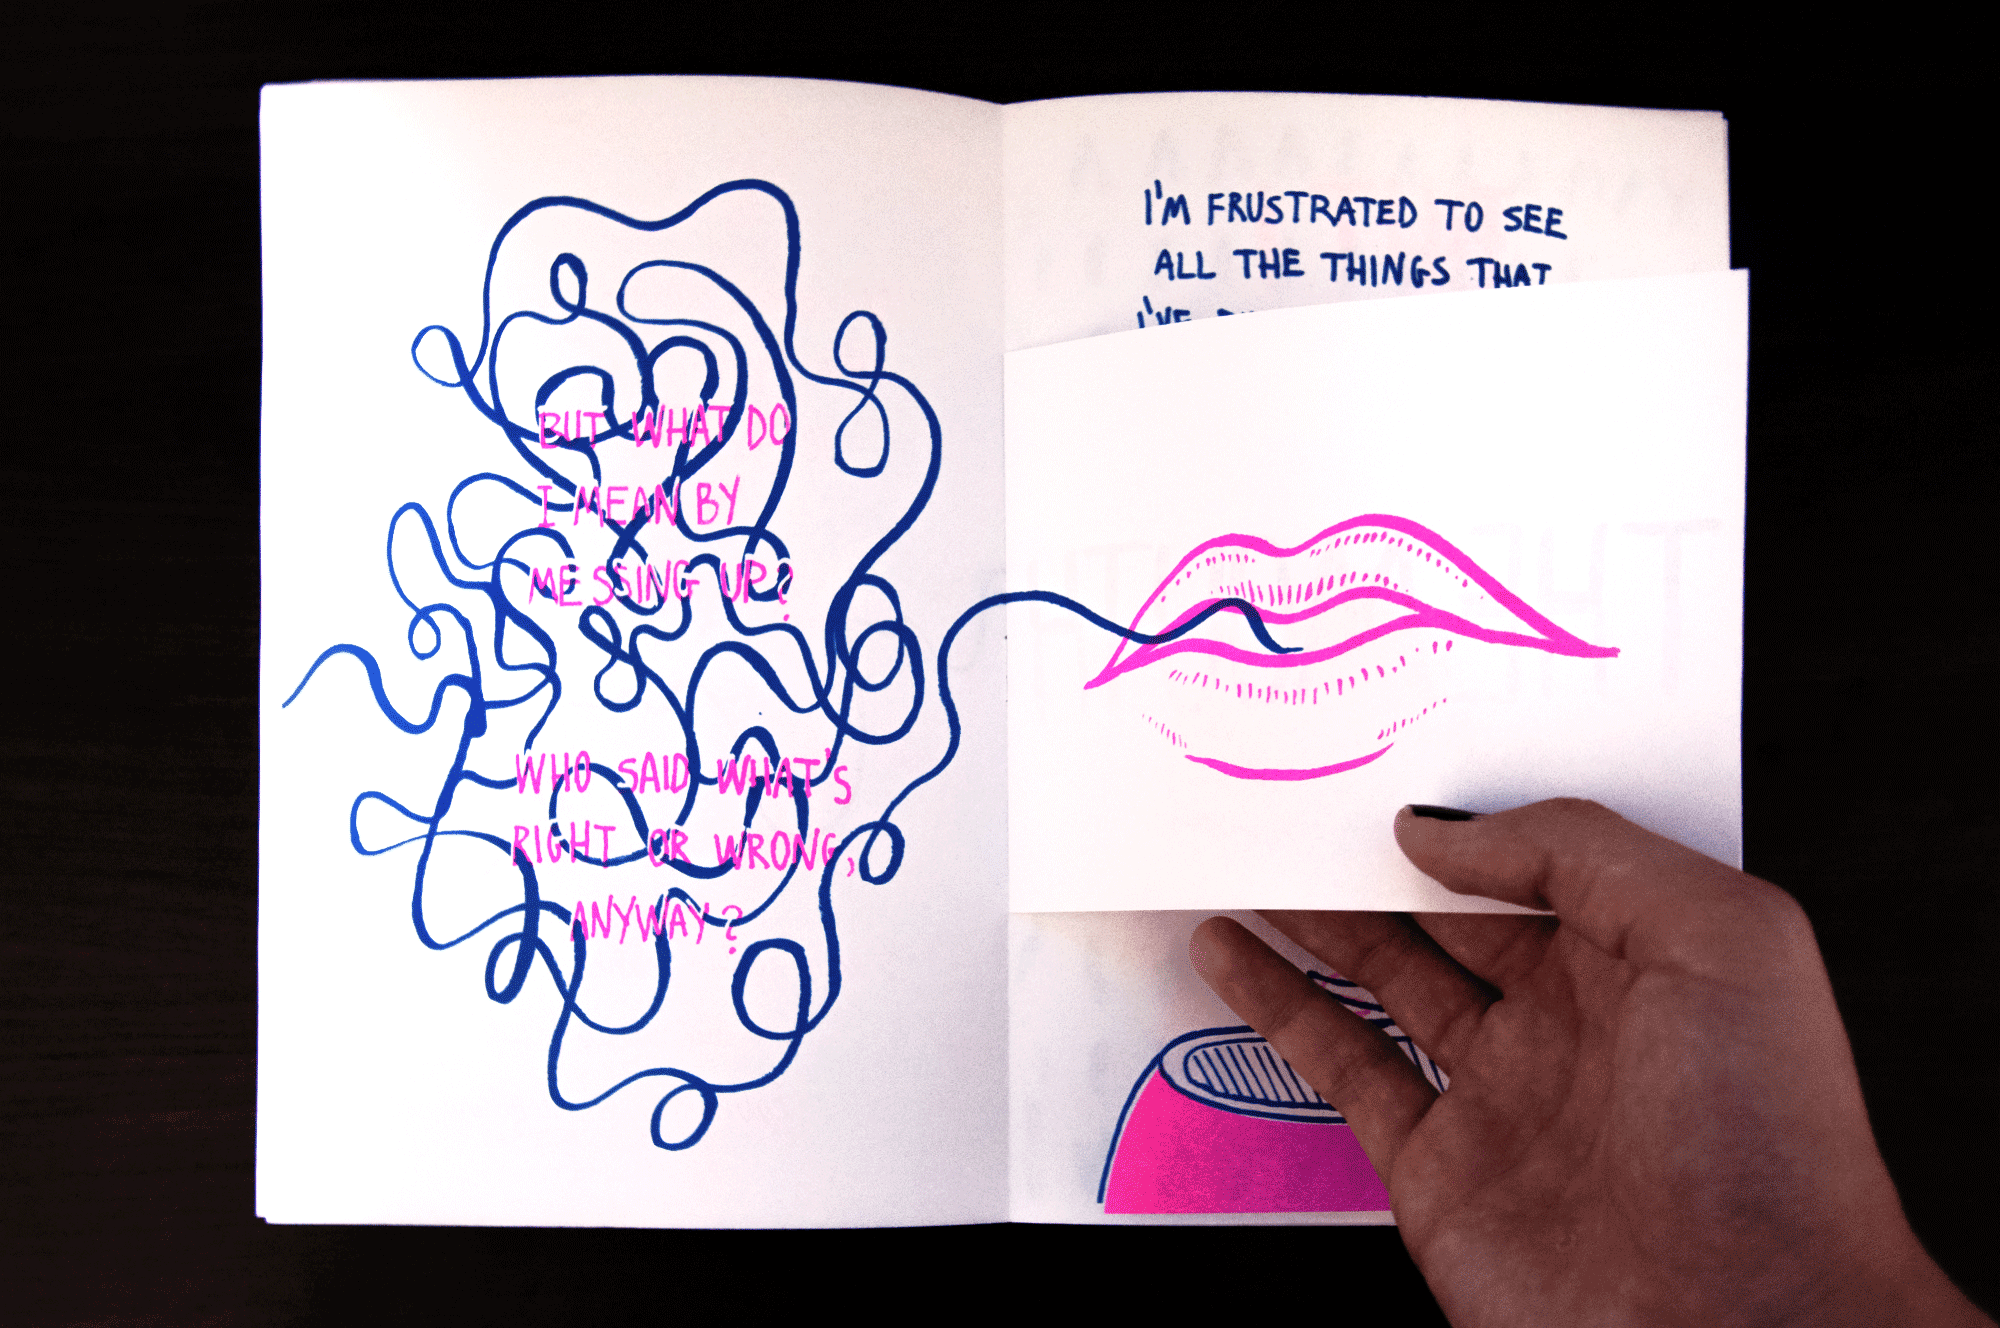 BUT WHAT DO
I MEAN BY
MESSING UP?
WHO SAID WHAT'S
RIGHT OR WRONG,
ANYWAY?
I'M FRUSTRATED TO SEE
ALL THE THINGS THAT
I'VE